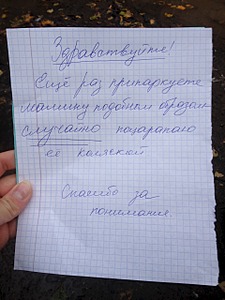 Здравствуйте!
Ещё раз припаркуете
машину подобным образом
случайно поцарапаю
её коляской
Спасибо за
понимание.